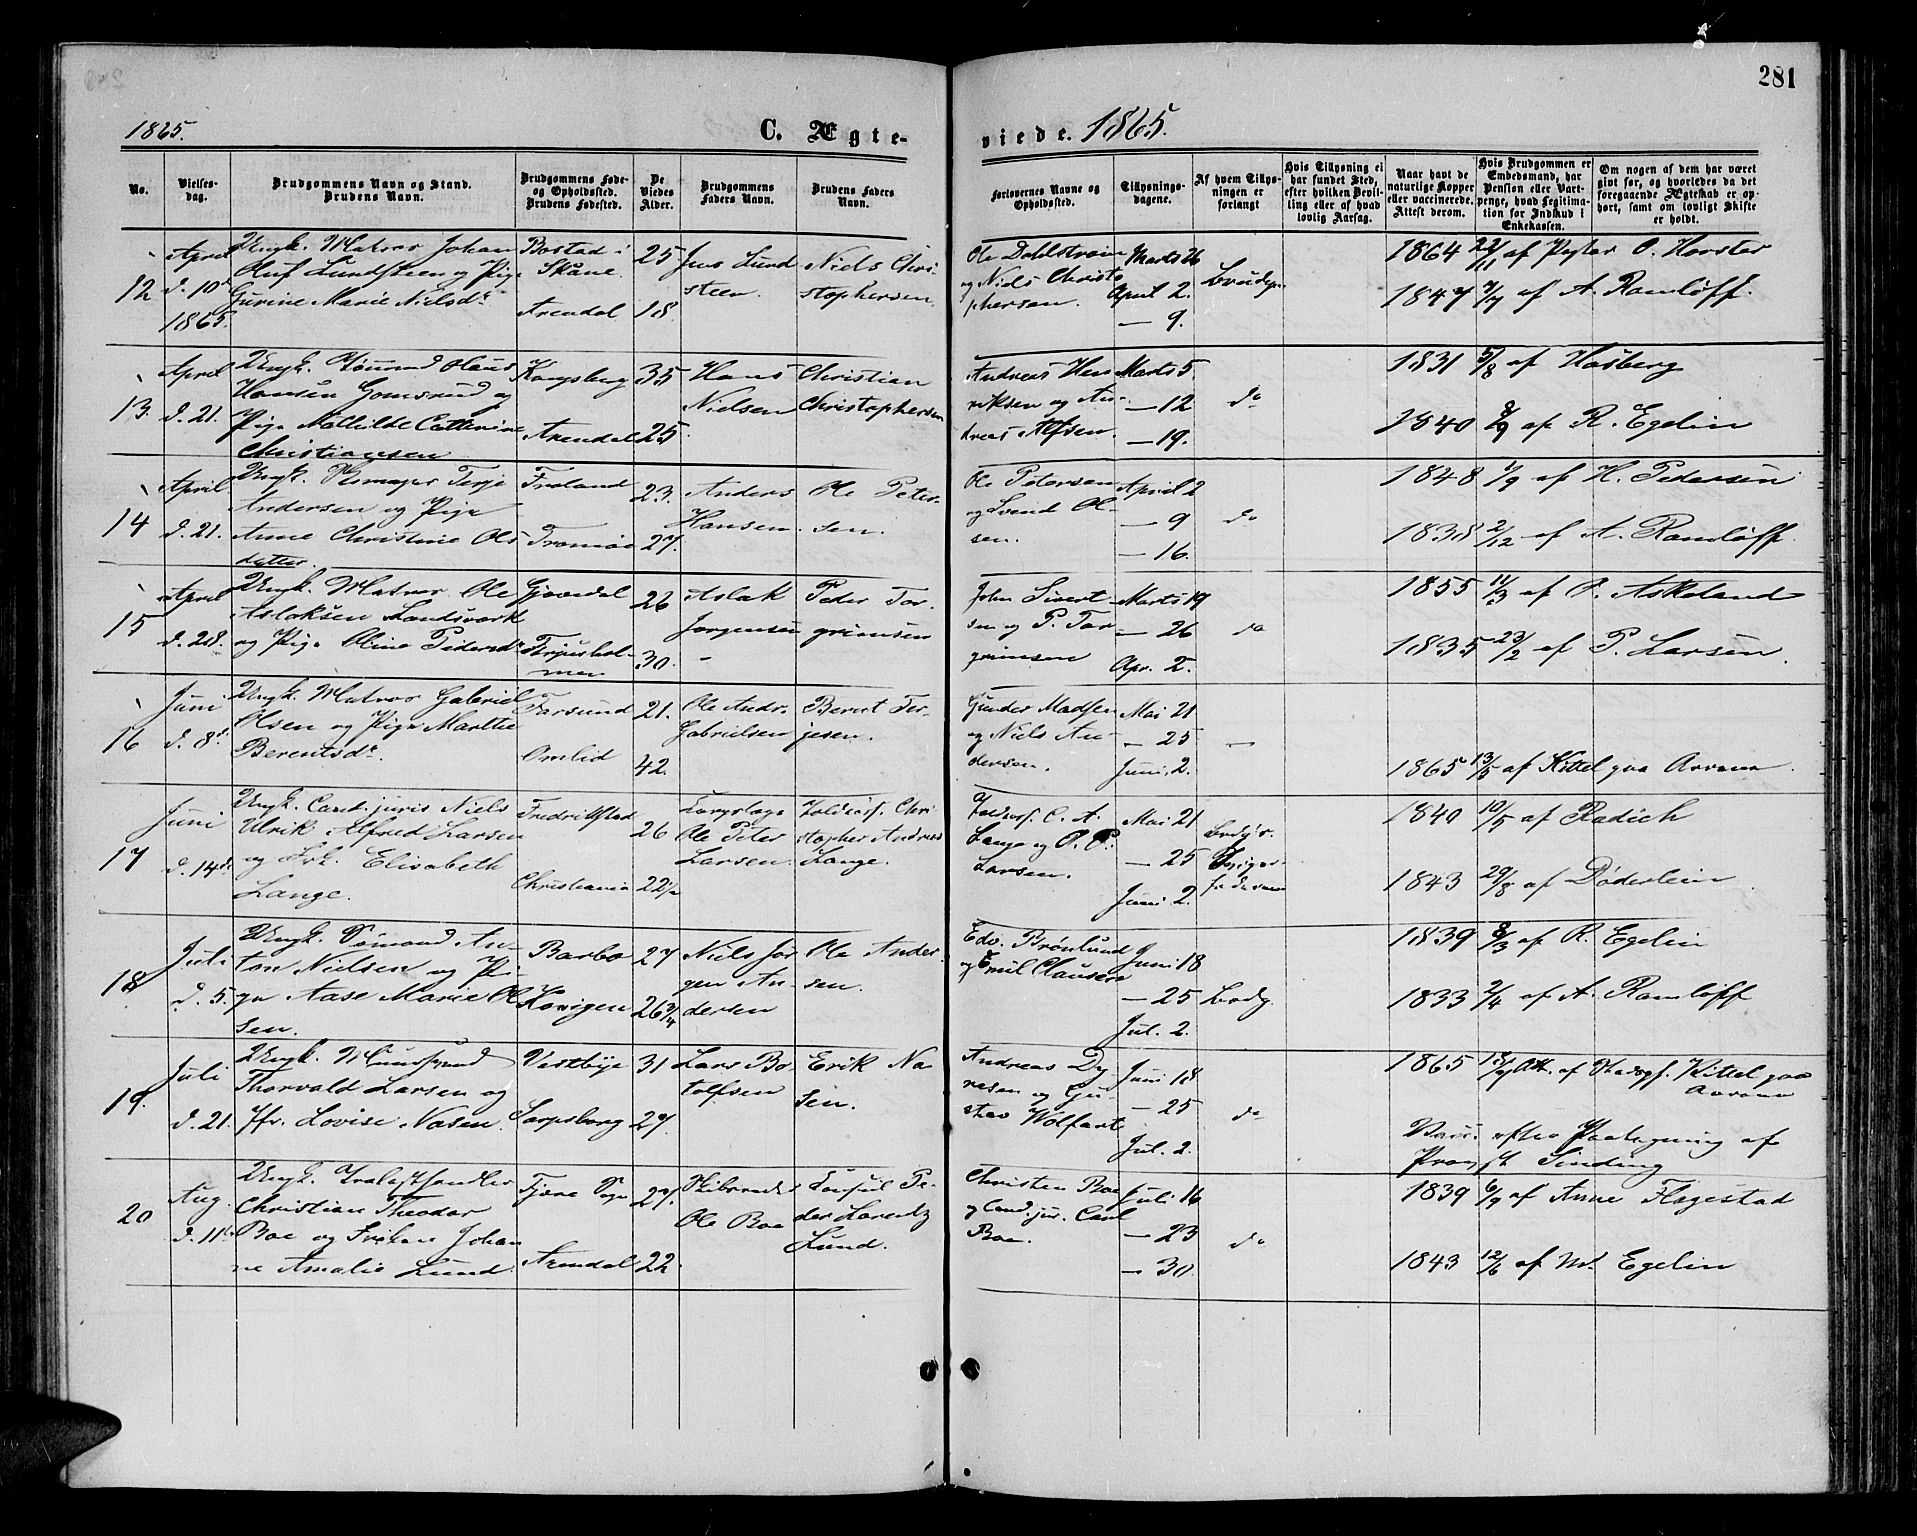 281
1865.
C. Ægte-
viede. 1865.
No.
Vielses-
dag.
Brudgommens Navn og Stand.
Brudens Navn.
Brudgommens Føde-
og Opholdssted.
Brudens Fødested.
De
Viedes
Alder.
Brudgommens
Faders Navn.
Brudens Faders
Navn.
Forlovernes Navne og
Opholdssted.
Tillysnings-
dagene.
Af hvem Tillys-
ningen er
forlangt
Hvis Tillysning ei
har fundet Sted,
efter hvilken Bevil-
ling eller af hvad
lovlig Aarsag.
Naar havt de
naturlige Kopper
eller vaccinerede.
Attest derom.
Hvis Brudgommen er
Embedsmand, har
Pension eller Vart-
penge, hvad Legitima-
tion for Indskud i
Enkekassen.
Om nogen af dem har været
givt før, og hvorledes da det
foregaaende Ægteskab er op-
hørt, samt om lovligt Skifte
er holdt.
12
April
d. 10de
1865.
Ungk. Matros Johan
Oluf Lundsteen og Pige
Gurine Marie Nielsdr.
Bostad i
Skåne.
Arendal
25
18.
Jens Lund
steen.
Niels Chri-
stophersen.
Ole Dahlstrøm
og Niels Christo
phersen.
Marts 26
April 2.
— 9.
Brudgn.
1864 22/11 af Pastor O. Horster
1847 7/7 af A. Ramløff.
13.
April
d. 21.
Hansen Gomsrud og
Pige Mathilde Cathrine
Christiansen
Kongsberg
Arendal
35
25.
Hans
Nielsen
Christian
Christophersen
Andreas Hen
riksen og An-
dreas Alfsen.
Marts 5.
— 12
— 19.
do
1831 5/8 af Hasberg
1840 9/9 af R. Egelin
14
April
d. 21.
Andersen og Pige
Anne Christine Ols
datter.
Froland
Tromøe
23.
27.
Anders
Hansen.
Ole Peter-
sen.
Ole Petersen
og Svend Ol-
sen.
April 2
— 9
— 16.
do
1848 1/9 af H. Pedersen
1838 2/12 af A. Ramløff.
15
April
d. 28.
Ungk. Matros Ole
Aslaksen Landsverk
og Pige Oline Pedersdr
Gjøvedal
Torjusholmen
26
30.
Aslak
Jørgensen
Peder Tor-
grimsen
John Sivert
sen og P. Tor
grimsen
Marts 19
— 26
Apr. 2.
do
1855 11/3 af O. Askeland
1835 23/2 af P. Larsen.
16
Juni
d. 8de
Ungk. Matros Gabriel
Olsen og Pige Marthe
Berentsdr.
Farsund
Omlid
21.
42.
Ole Andr.
Gabrielsen
Berent Ter-
jesen.
Gunder Madsen
og Niels An-
dersen.
Mai 21
— 25
Juni 2.
—
1865 13/5 af Kittel paa Asvana.
17
Juni
d. 14de
Ungk. Cand. juris Niels
Ulrik Alfred Larsen
og Frk. Elisabeth
Lange.
Fredrikstad
Christiania
26
22 1/2
Ole Peter
Larsen.
Toldinsp. Chri
stopher Andreas
Lange.
C. A.
Lange og O. P.
Larsen.
Mai 21
— 25
Juni 2.
1840 10/5 af Radich
1843 29/8 af Døderlein
18
Juli
d. 5.
Ungk. Sømand An-
ton Nielsen og Pi-
ge Aase Marie Ol
sen.
Barbo
Havigen
27
26 3/4
Niels Jør
gen An-
dersen
Ole Ander-
sen.
Edv. Brønlund
og Emil Clausen
Juni 18
— 25
Jul. 2.
Brdg.
1839 8/3 af R. Egelin
1833 2/4 af A. Ramløff
19.
Juli
d. 21.
Ungk. Muursvend
Thorvald Larsen og
Jfr. Lovise Næsen.
Vestbye
Sarpsborg
31
27.
Lars Bo
tolfsen
Erik Næ
sen.
Andreas Dy
resen og Gu-
stav Wolfart
Juni 18
— 25
Jul. 2.
do
1865 Att. af Kittel paa
Vacc. efter Paategning af
Provst Sinding
20
Aug.
d. 11te
Ungk. Trælasthandler
Christian Theodor
Boe og Frøken Johan
ne Amalie Lund.
Arendal
27.
22.
Skibsreder
Ole Boe
Consul Pe-
der Lorentz
Lund.
Christen Boe
og Cand. jur. Carl
Boe.
Juli 16
— 23
— 30.
do
1839 6/9 af Anne Flagestad
1843 12/6 af M. Egelin